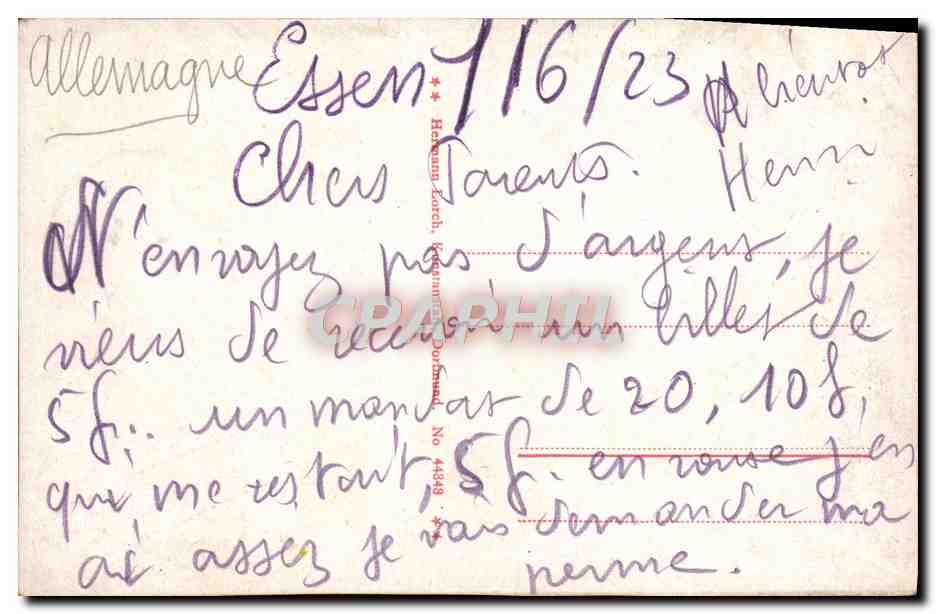 Allemagne
Essen 7/6/23
A bientot
Henri
Chers Parents.
N'envoyez pas d'argent, je
viens de recevoir un billet de
5 f. un mandat de 20, 10 f,
qui me restait, 5 f. en j'en
ai assez je vais demander ma
perme.
** Hermann Lorch, Kunstanstalt, Dortmund. No 44848 **
CPAPHIL